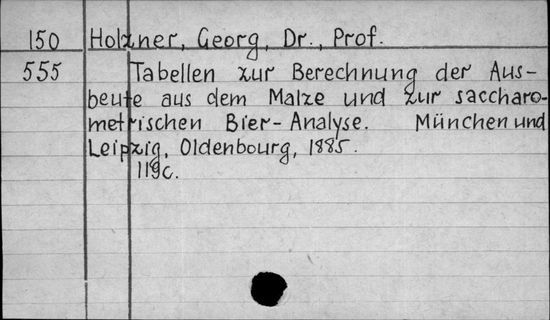 150 Holzner, Georg, Dr., Prof.
555 Tabellen zur Berechnung der Aus-
beute aus dem Malze und zur saccharo-
metrischen Bier-Analyse. München und
Leipzig, Oldenbourg, 1885.
119c.